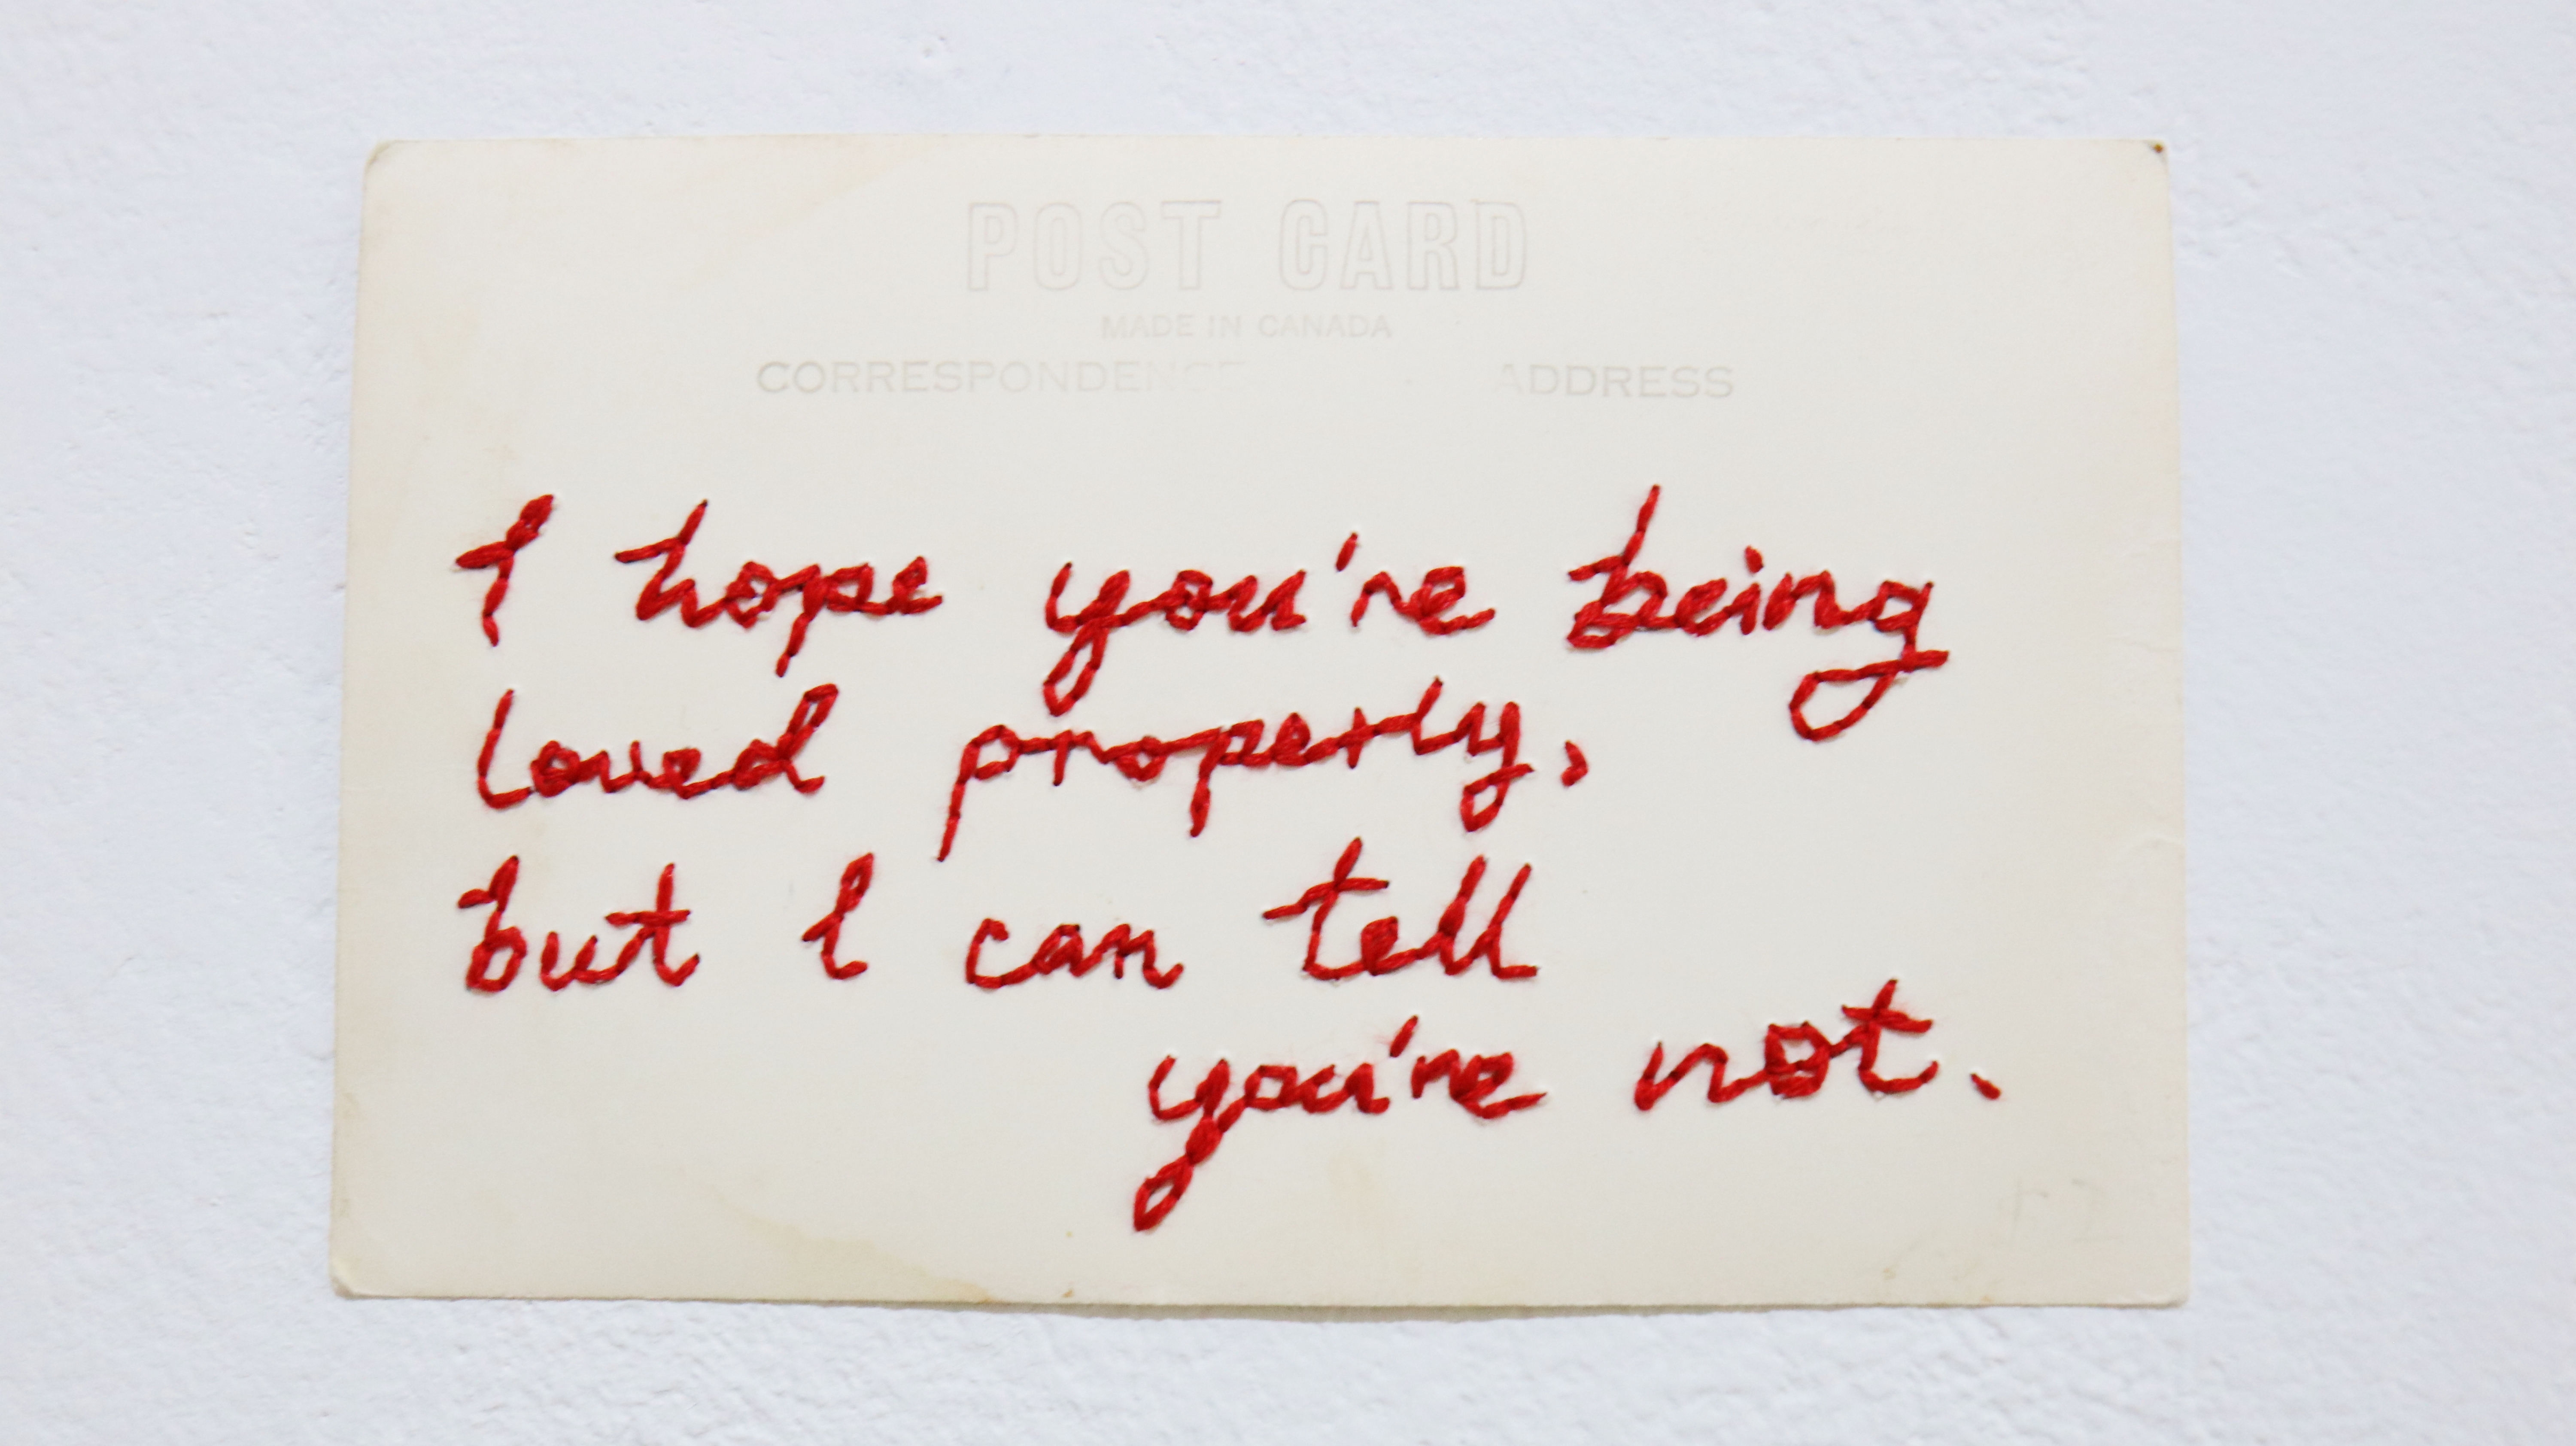 POST CARD
MADE IN CANADA
CORRESPONDENCE ADDRESS
I hope you're being
loved properly,
but I can tell
you're not.